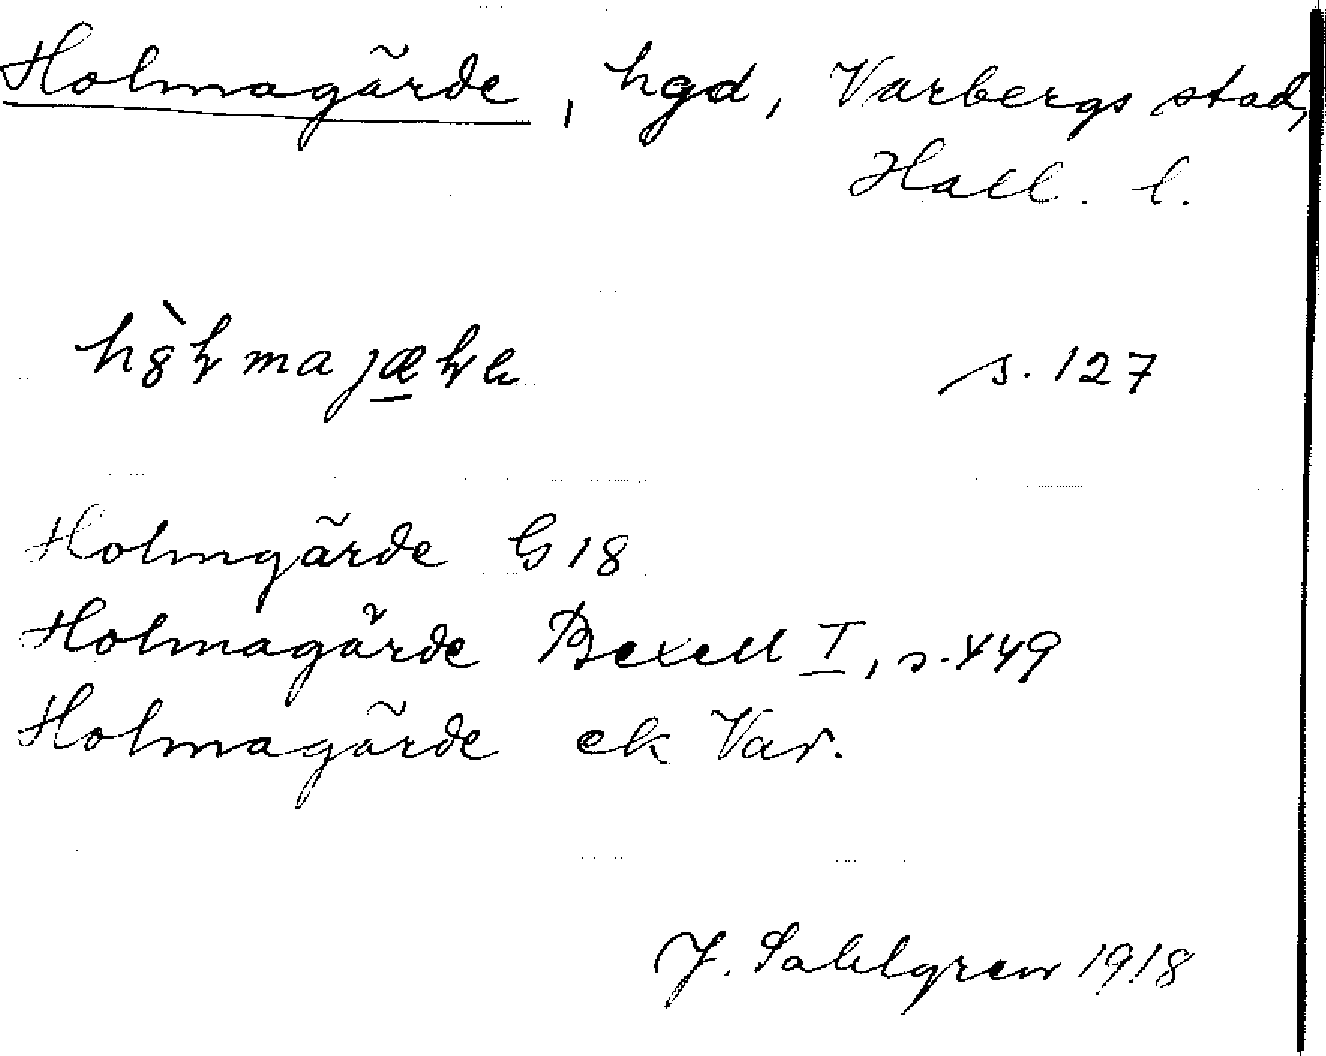 Holmagärde, hgd, Varbergs stad,
Hall. l.
s. 127
Holmgärde G 18
Holmagärde Bexell I, s. 449
Holmagärde ek Var.
J. Sahlgren 1918